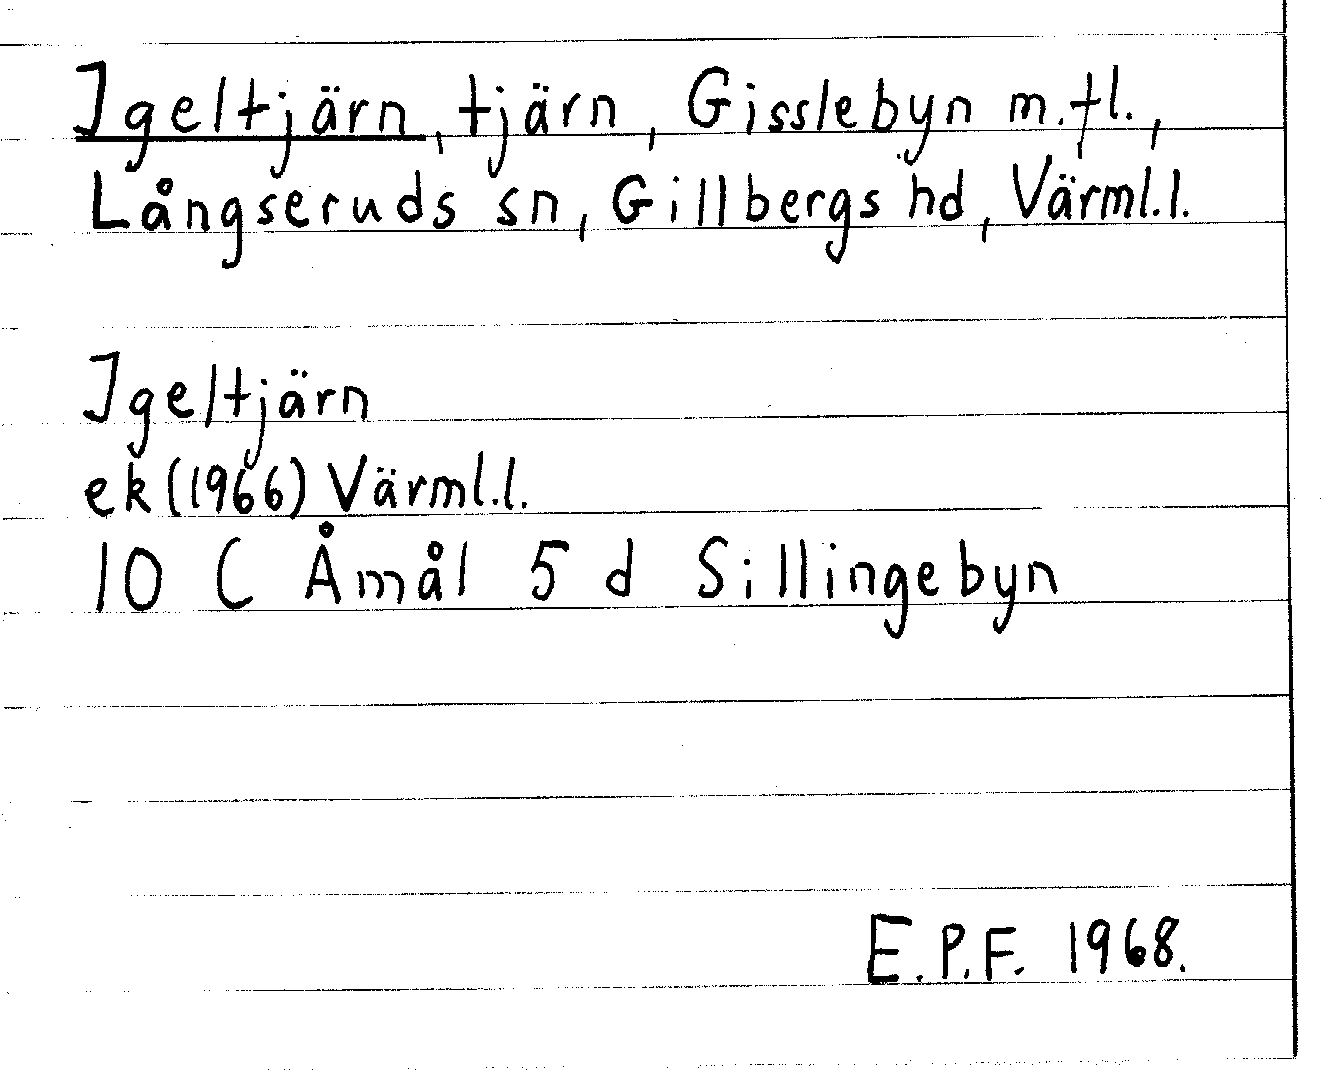 Igeltjärn, tjärn, Gisslebyn m.fl.,
Långseruds sn, Gillbergs hd, Värml.l.
Igeltjärn
ek (1966) Värml.l.
10 C Åmål 5 d Sillingebyn
E.P.F. 1968.